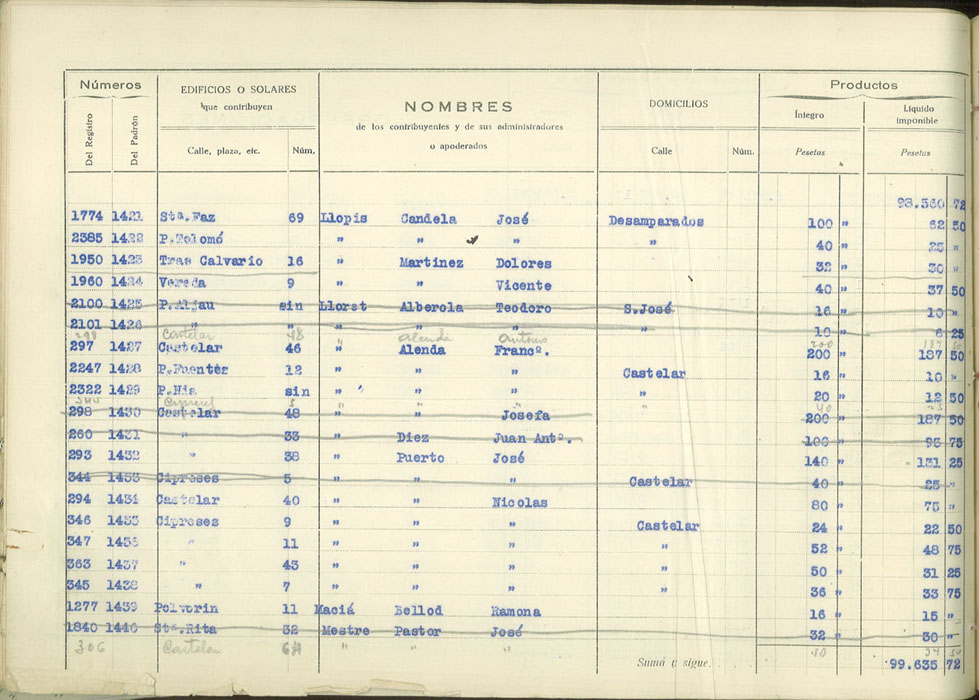 Números EDIFICIOS O SOLARES NOMBRES DOMICILIOS Productos
que contribuyen de los contribuyentes y de sus administradores o apoderados Íntegro Líquido imponible
Del Registro Del Padrón Calle, plaza, etc. Núm. Calle Núm. Pesetas Pesetas
98.560 72
1774 1421 Stª.Faz 69 Llopis Candela José Desamparados 100 " 62 50
2385 1422 P.Tolomó " " " " 40 " 25 "
1950 1423 Tras Calvario 16 " Martinez Dolores 32 " 30 "
1960 1424 Vereda 9 " " Vicente 40 " 37 50
2100 1425 P.Aljau sin Llorst Alberola Teodoro S.José 16 " 10 "
2101 1426 " " " " " " 10 " 6 25
299 Castelar 48 " Alenda Antonio 200 187 50
297 1427 Castelar 46 " Alenda Francº. 200 " 187 50
2247 1428 P.Fuentes 12 " " " Castelar 16 " 10 "
2322 1429 P.Nia sin " " " " 20 " 12 50
344 5 " " " " 40
298 1430 Castelar 48 " " Josefa 200 " 187 50
260 1431 " 33 " Diez Juan Antº. 100 " 93 75
293 1432 " 38 " Puerto José 140 " 131 25
344 1433 Cipreses 5 " " " Castelar 40 " 25 "
294 1434 Castelar 40 " " Nicolas 80 " 75 "
346 1435 Cipreses 9 " " " Castelar 24 " 22 50
347 1436 " 11 " " " " 52 " 48 75
363 1437 " 43 " " " " 50 " 31 25
345 1438 " 7 " " " " 36 " 33 75
1277 1439 Polvorin 11 Maciá Bellod Ramona 16 " 15 "
1840 1440 Stª.Rita 32 Mestre Pastor José 32 " 30 "
306 Castelar " " "
Suma y sigue. 99.635 72